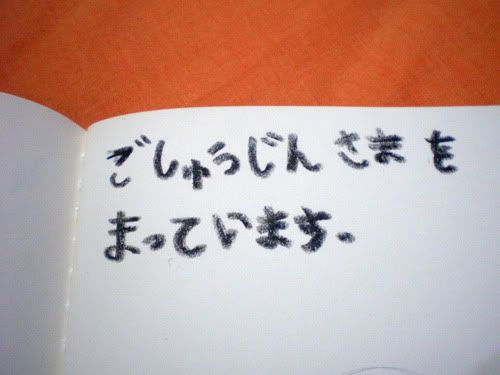 ごしゅうじんさまを
まっていまち。